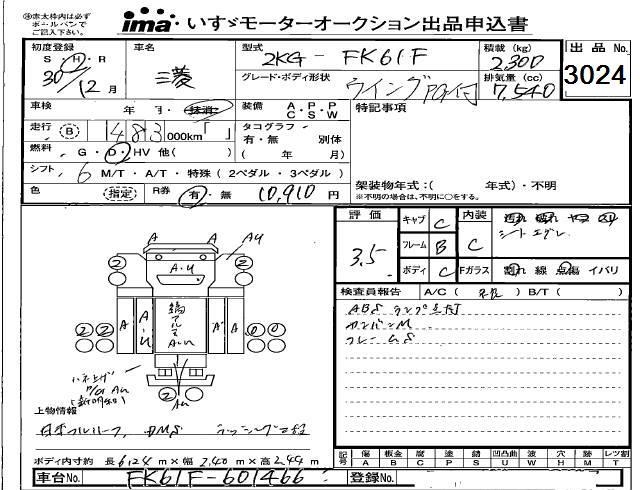 ㊟赤太枠内は必ず
ボールペンで
ご記入下さい。
ima いすゞモーターオークション出品申込書
初度登録 S・H・R 30/12月
車名 三菱
型式 2KG-FK61F
積載(kg) 2,300
出品No. 3024
グレード・ボディ形状 ウイングPG付
排気量(cc) 7,540
車検 年 月・抹消
装備 A・P・P C・S・W
特記事項
走行 B 483,000km「 」
タコグラフ 有・無 別体 ( 年 月)
燃料 G・D・HV 他( )
シフト 6 M/T・A/T・特殊(2ペダル・3ペダル)
色 (指定) R券 有・無 10,910円
架装物年式:( 年式)・不明
※不明の場合は、不明に○をする。
評価 3.5
キャブ C
フレーム B
ボディ C
内装 C
シートエグレ
Fガラス 割れ 線 点傷 イバリ
検査員報告 A/C( ) B/T( )
ABSランプ点灯
カンバンM
フレームS
A A AU
2 2
A・U
2 2 A A・U A・U A A
ハネ上げ
P/G AU
2 AU
上物情報
日本フルハーフ、DMS ラッシング2段
ボディ内寸約 長6.24m×幅2.40m×高2.44m
記号 傷A 板金B 腐C 塗P 錆S 凹凸曲U 波W 穴H メM レツ割T
車台No. FK61F-601466
登録No.